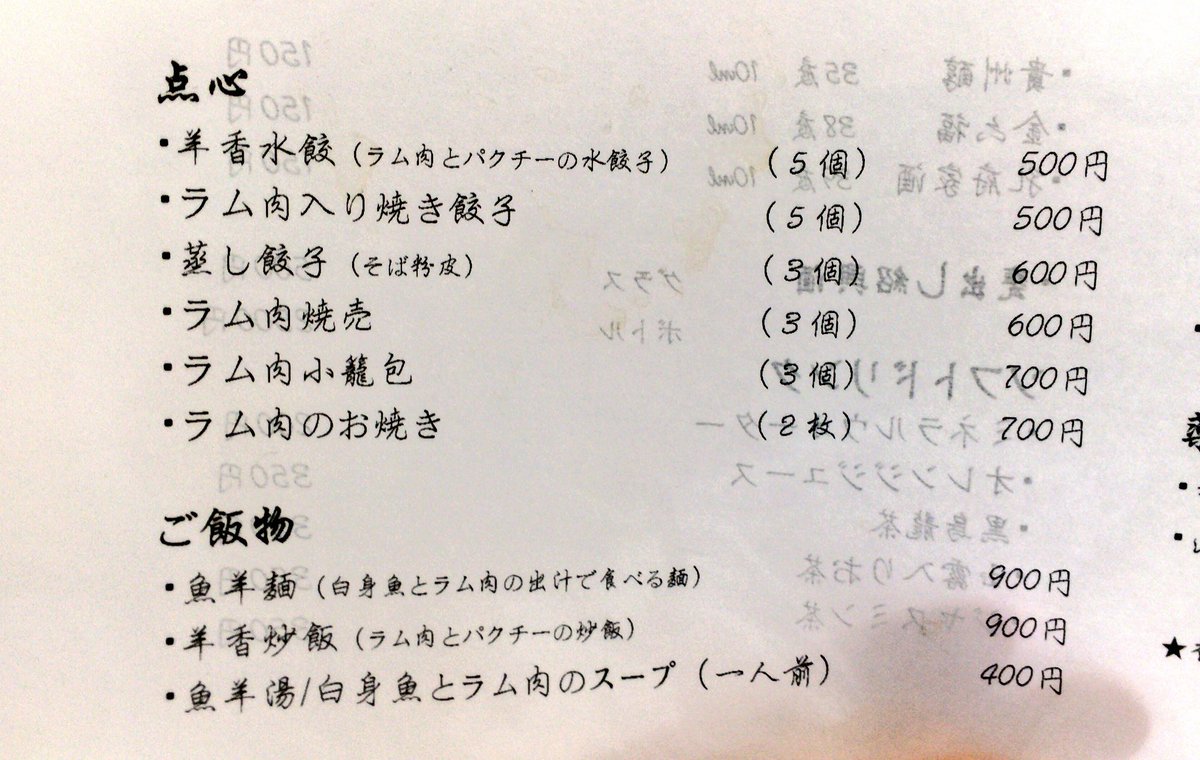 点心
・羊香水餃（ラム肉とパクチーの水餃子） （5個） 500円
・ラム肉入り焼き餃子 （5個） 500円
・蒸し餃子（そば粉皮） （3個） 600円
・ラム肉焼売 （3個） 600円
・ラム肉小籠包 （3個） 700円
・ラム肉のお焼き （2枚） 700円
ご飯物
・魚羊麺（白身魚とラム肉の出汁で食べる麺） 900円
・羊香炒飯（ラム肉とパクチーの炒飯） 900円
・魚羊湯/白身魚とラム肉のスープ（一人前） 400円